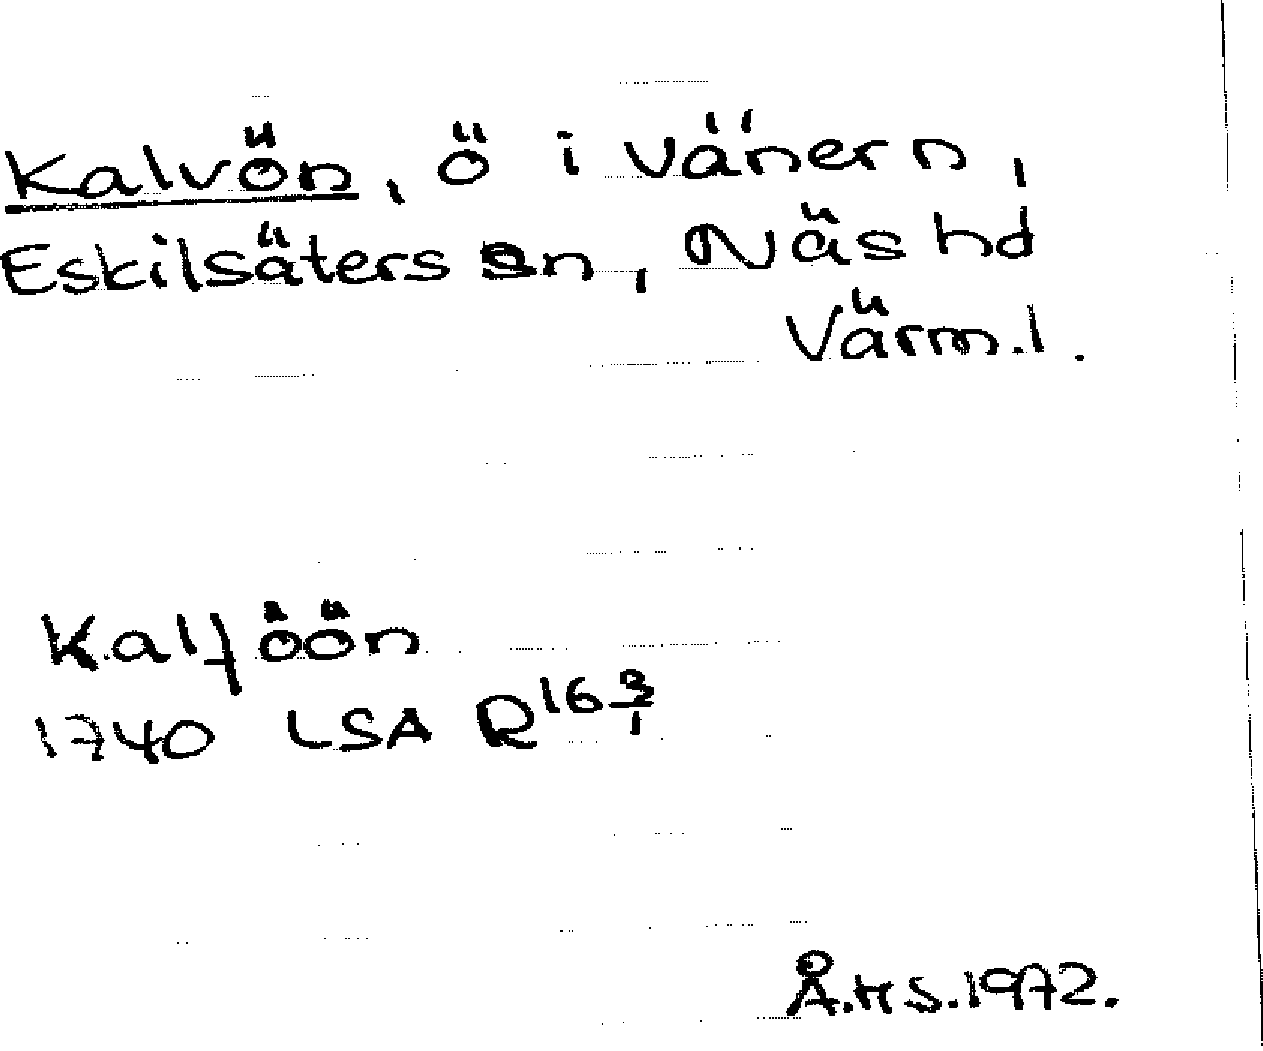 Kalvön, ö i Vänern,
Eskilsäters sn, Näs hd
Värml.
Kalföön
1740 LSA R16 3/1
Å.H S.1972.